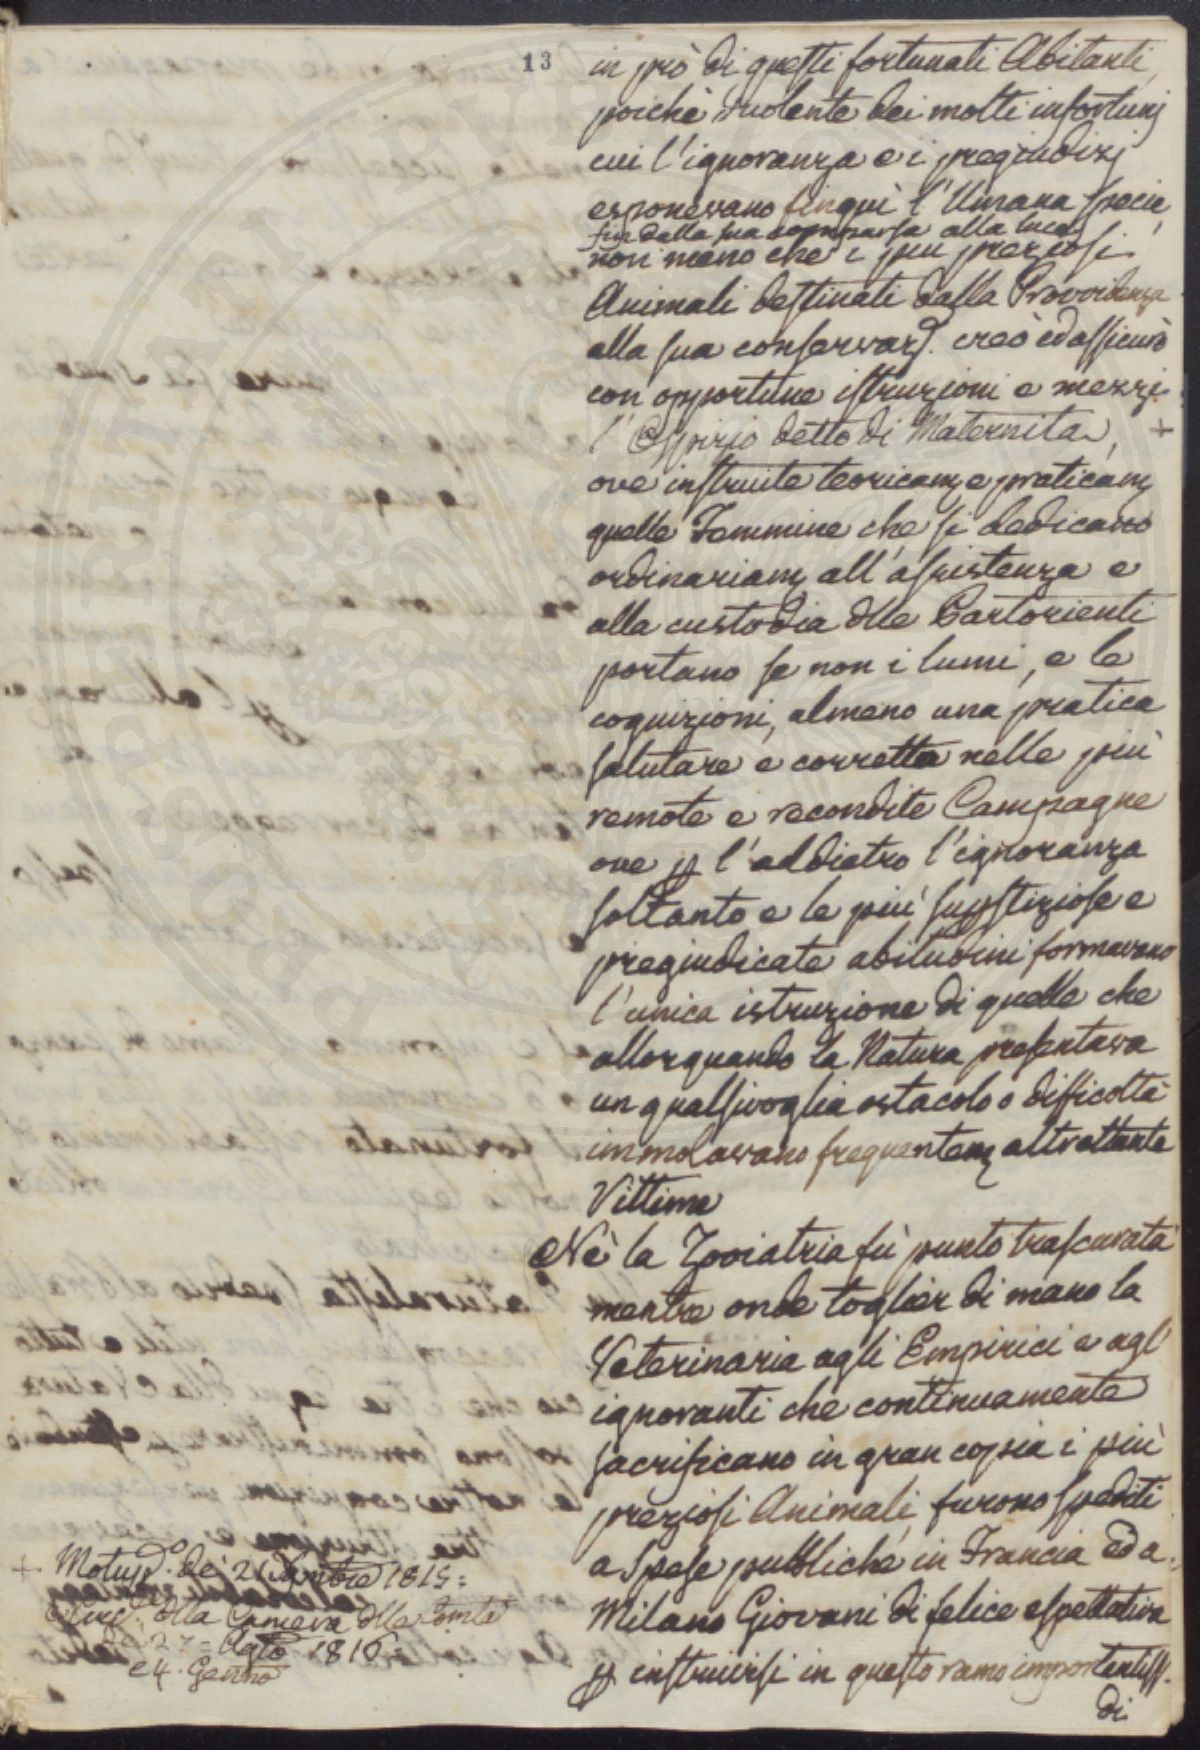 13
in prò di questi fortunati Abitanti,
poichè dnolente dei molti infortunj
cui l'ignoranza e i pregiudizj
esponevano finquì l'Umana specie
fin dalla sua comparsa alla luce,
non meno che i più preziosi
Animali destinati dalla Provvidenza
alla sua conservaz. creò ed assicurò
con opportune istruzioni e mezzi
l'Ospizio detto di Maternita, +
ove instruite teoricam e praticam
quelle Femmine che si dedicano
ordinariam all'assistenza e
alla custodia dlle Partorienti
portano se non i lumi, e le
cognizioni, almeno una pratica
salutare e corretta nelle più
remote e recondite Campagne
ove p l'addietro l'ignoranza
soltanto e le più supstiziose e
pregiudicate abitudini formavano
l'unica istruzione di quelle che
allorquando la Natura presentava
un qualsivoglia ostacolo o difficoltà
immolavano frequentem altrettante
Vittime
Nè la Zooiatria fù punto trascurata
mentre onde toglier di mano la
Veterinaria agli Empirici e agl'
ignoranti che continuamente
sacrificano in gran copia i più
preziosi Animali, furono spediti
a spese pubbliche in Francia ed a
Milano Giovani di felice espettativa
p instruirsi in questo ramo importantiss.
di
+ Motup.º de' 21 1815=
dlla Camera dlle
de' 27 = Agto 1816=
e 4. Genno